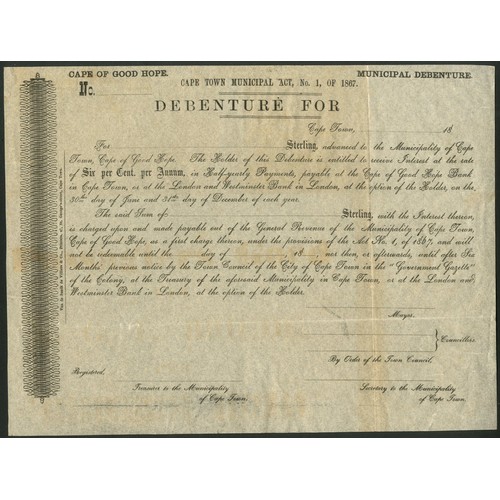 CAPE OF GOOD HOPE.
MUNICIPAL DEBENTURE.
No.
CAPE TOWN MUNICIPAL ACT, No. 1, OF 1867.
DEBENTURE FOR
Cape Town, 18
For Sterling, advanced to the Municipality of Cape
Town, Cape of Good Hope. The Holder of this Debenture is entitled to receive Interest at the rate
of Six per Cent. per Annum, in Half-yearly Payments, payable at the Cape of Good Hope Bank
in Cape Town, or at the London and Westminster Bank in London, at the option of the Holder, on the
30th day of June and 31st day of December of each year.
The said Sum of Sterling, with the Interest thereon,
is charged upon and made payable out of the General Revenue of the Municipality of Cape Town,
Cape of Good Hope, as a first charge thereon, under the provisions of the Act No. 1, of 1867, and will
not be redeemable until the day of 18 nor then, or afterwards, until after Six
Months' previous notice by the Town Council of the City of Cape Town in the "Government Gazette"
of the Colony, at the Treasury of the aforesaid Municipality in Cape Town, or at the London and
Westminster Bank in London, at the option of the Holder.
Mayor.
Councillors
By Order of the Town Council,
Registered,
Treasurer to the Municipality
of Cape Town.
Secretary to the Municipality
of Cape Town.